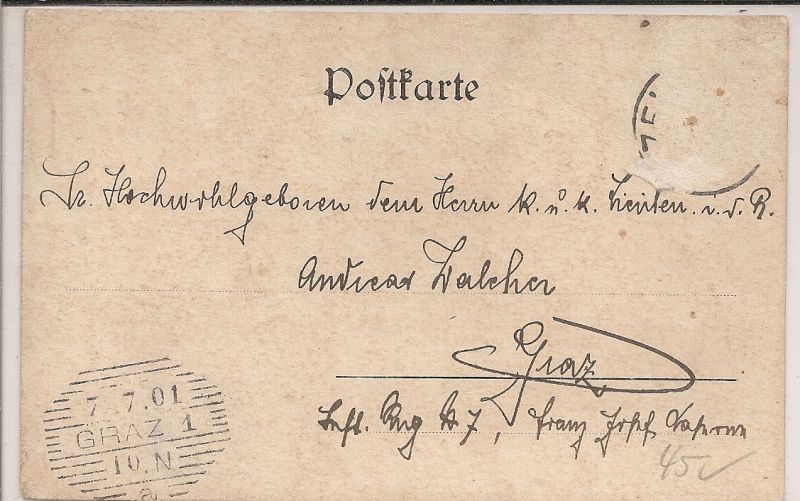 Postkarte
Sr. Hochwohlgeboren dem Herrn k. u. k. Lieuten. i. d. R.
Andreas Walcher
Graz
Inft. Rug № 7, Franz Josef Caserne
7. 7. 01
GRAZ 1
10. N
a
45